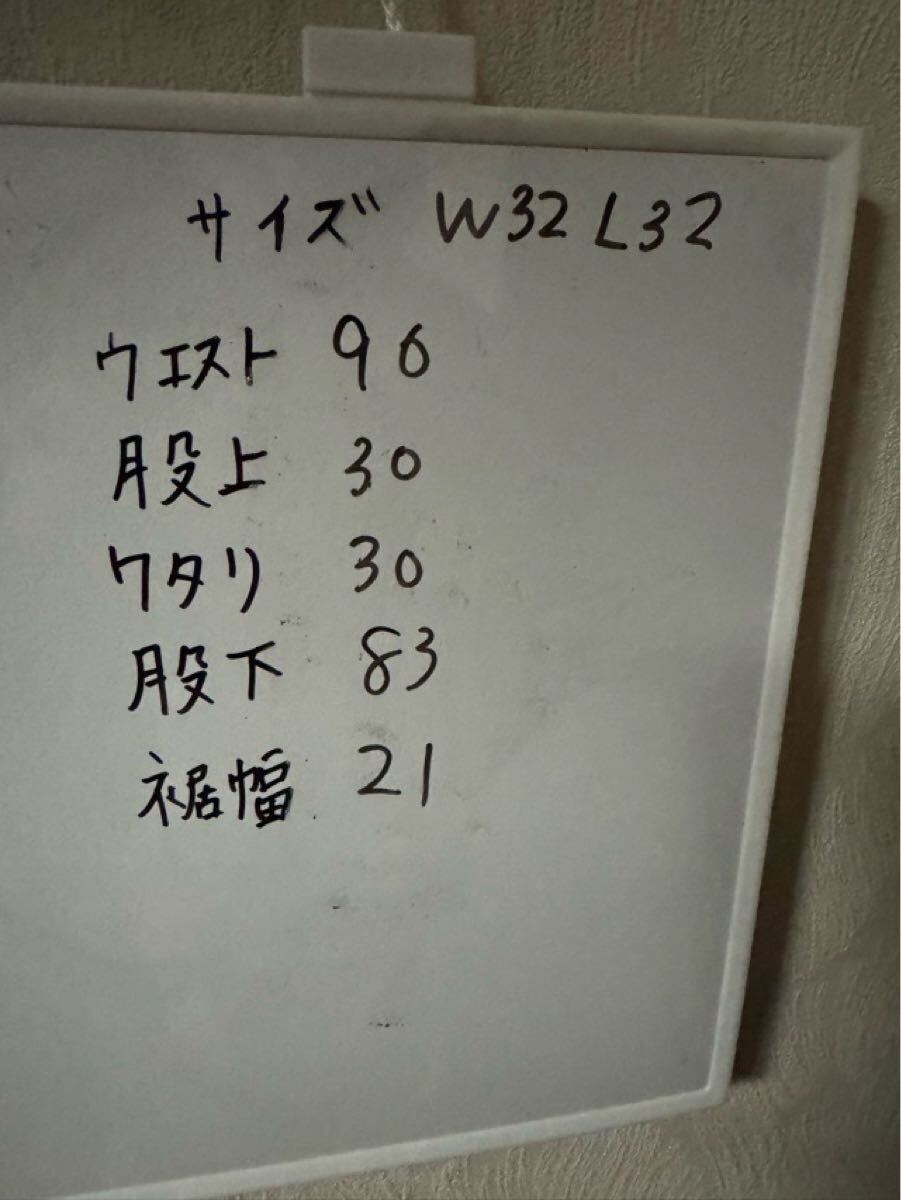 サイズ W32 L32
ウエスト 90
股上 30
ワタリ 30
股下 83
裾幅 21